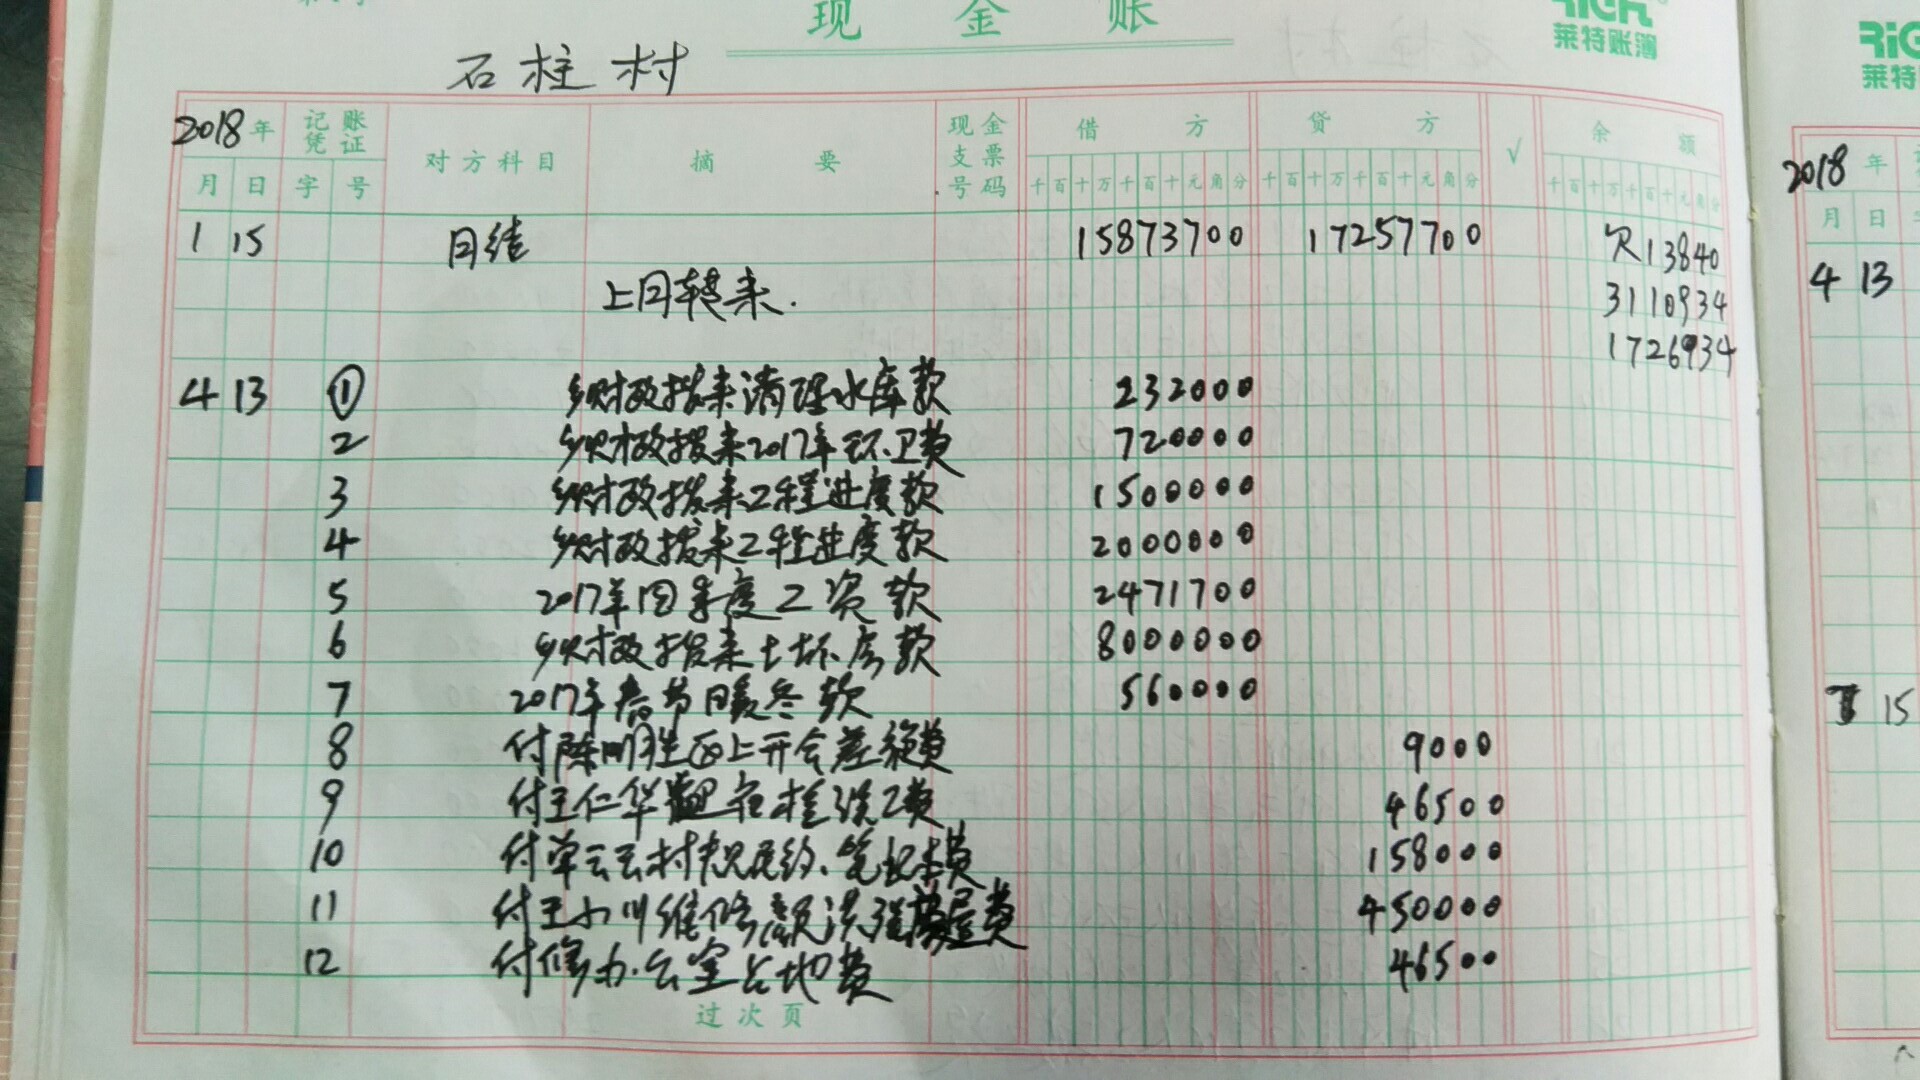 现 金 账
RiGR
莱特账簿
石柱村
2018年 记账凭证 对方科目 摘 要 现金支票号码 借 方 贷 方 √ 余 额
月 日 字 号 千百十万千百十元角分 千百十万千百十元角分 千百十万千百十元角分
1 15 月结 15873700 17257700 欠13840
上月转来. 3110934
1726934
4 13 ① 乡财政拨来清理水库款 232000
2 乡财政拨来2017年环卫费 720000
3 乡财政拨来工程进度款 1500000
4 乡财政拨来工程进度款 2000000
5 2017年四季度工资款 2471700
6 乡财政拨来土坯房款 8000000
7 2017年春节暖冬款 560000
8 付陈明生 上开会差旅费 9000
9 付王仁华 工费 46500
10 付单云云村规民约、笔记本费 158000
11 付王小川维修 屋费 450000
12 付修办公室占地费 46500
过次页
RiG
莱特
2018 年
月 日
4 13
15